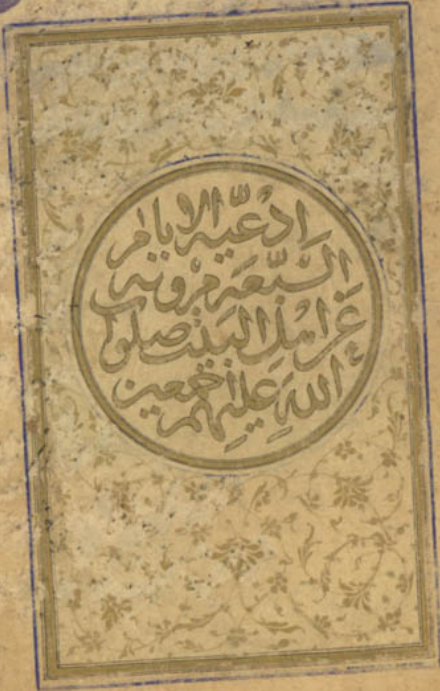 ادعية الايام
السبعة مروية
عن اهل البيت صلوات
الله عليهم اجمعين